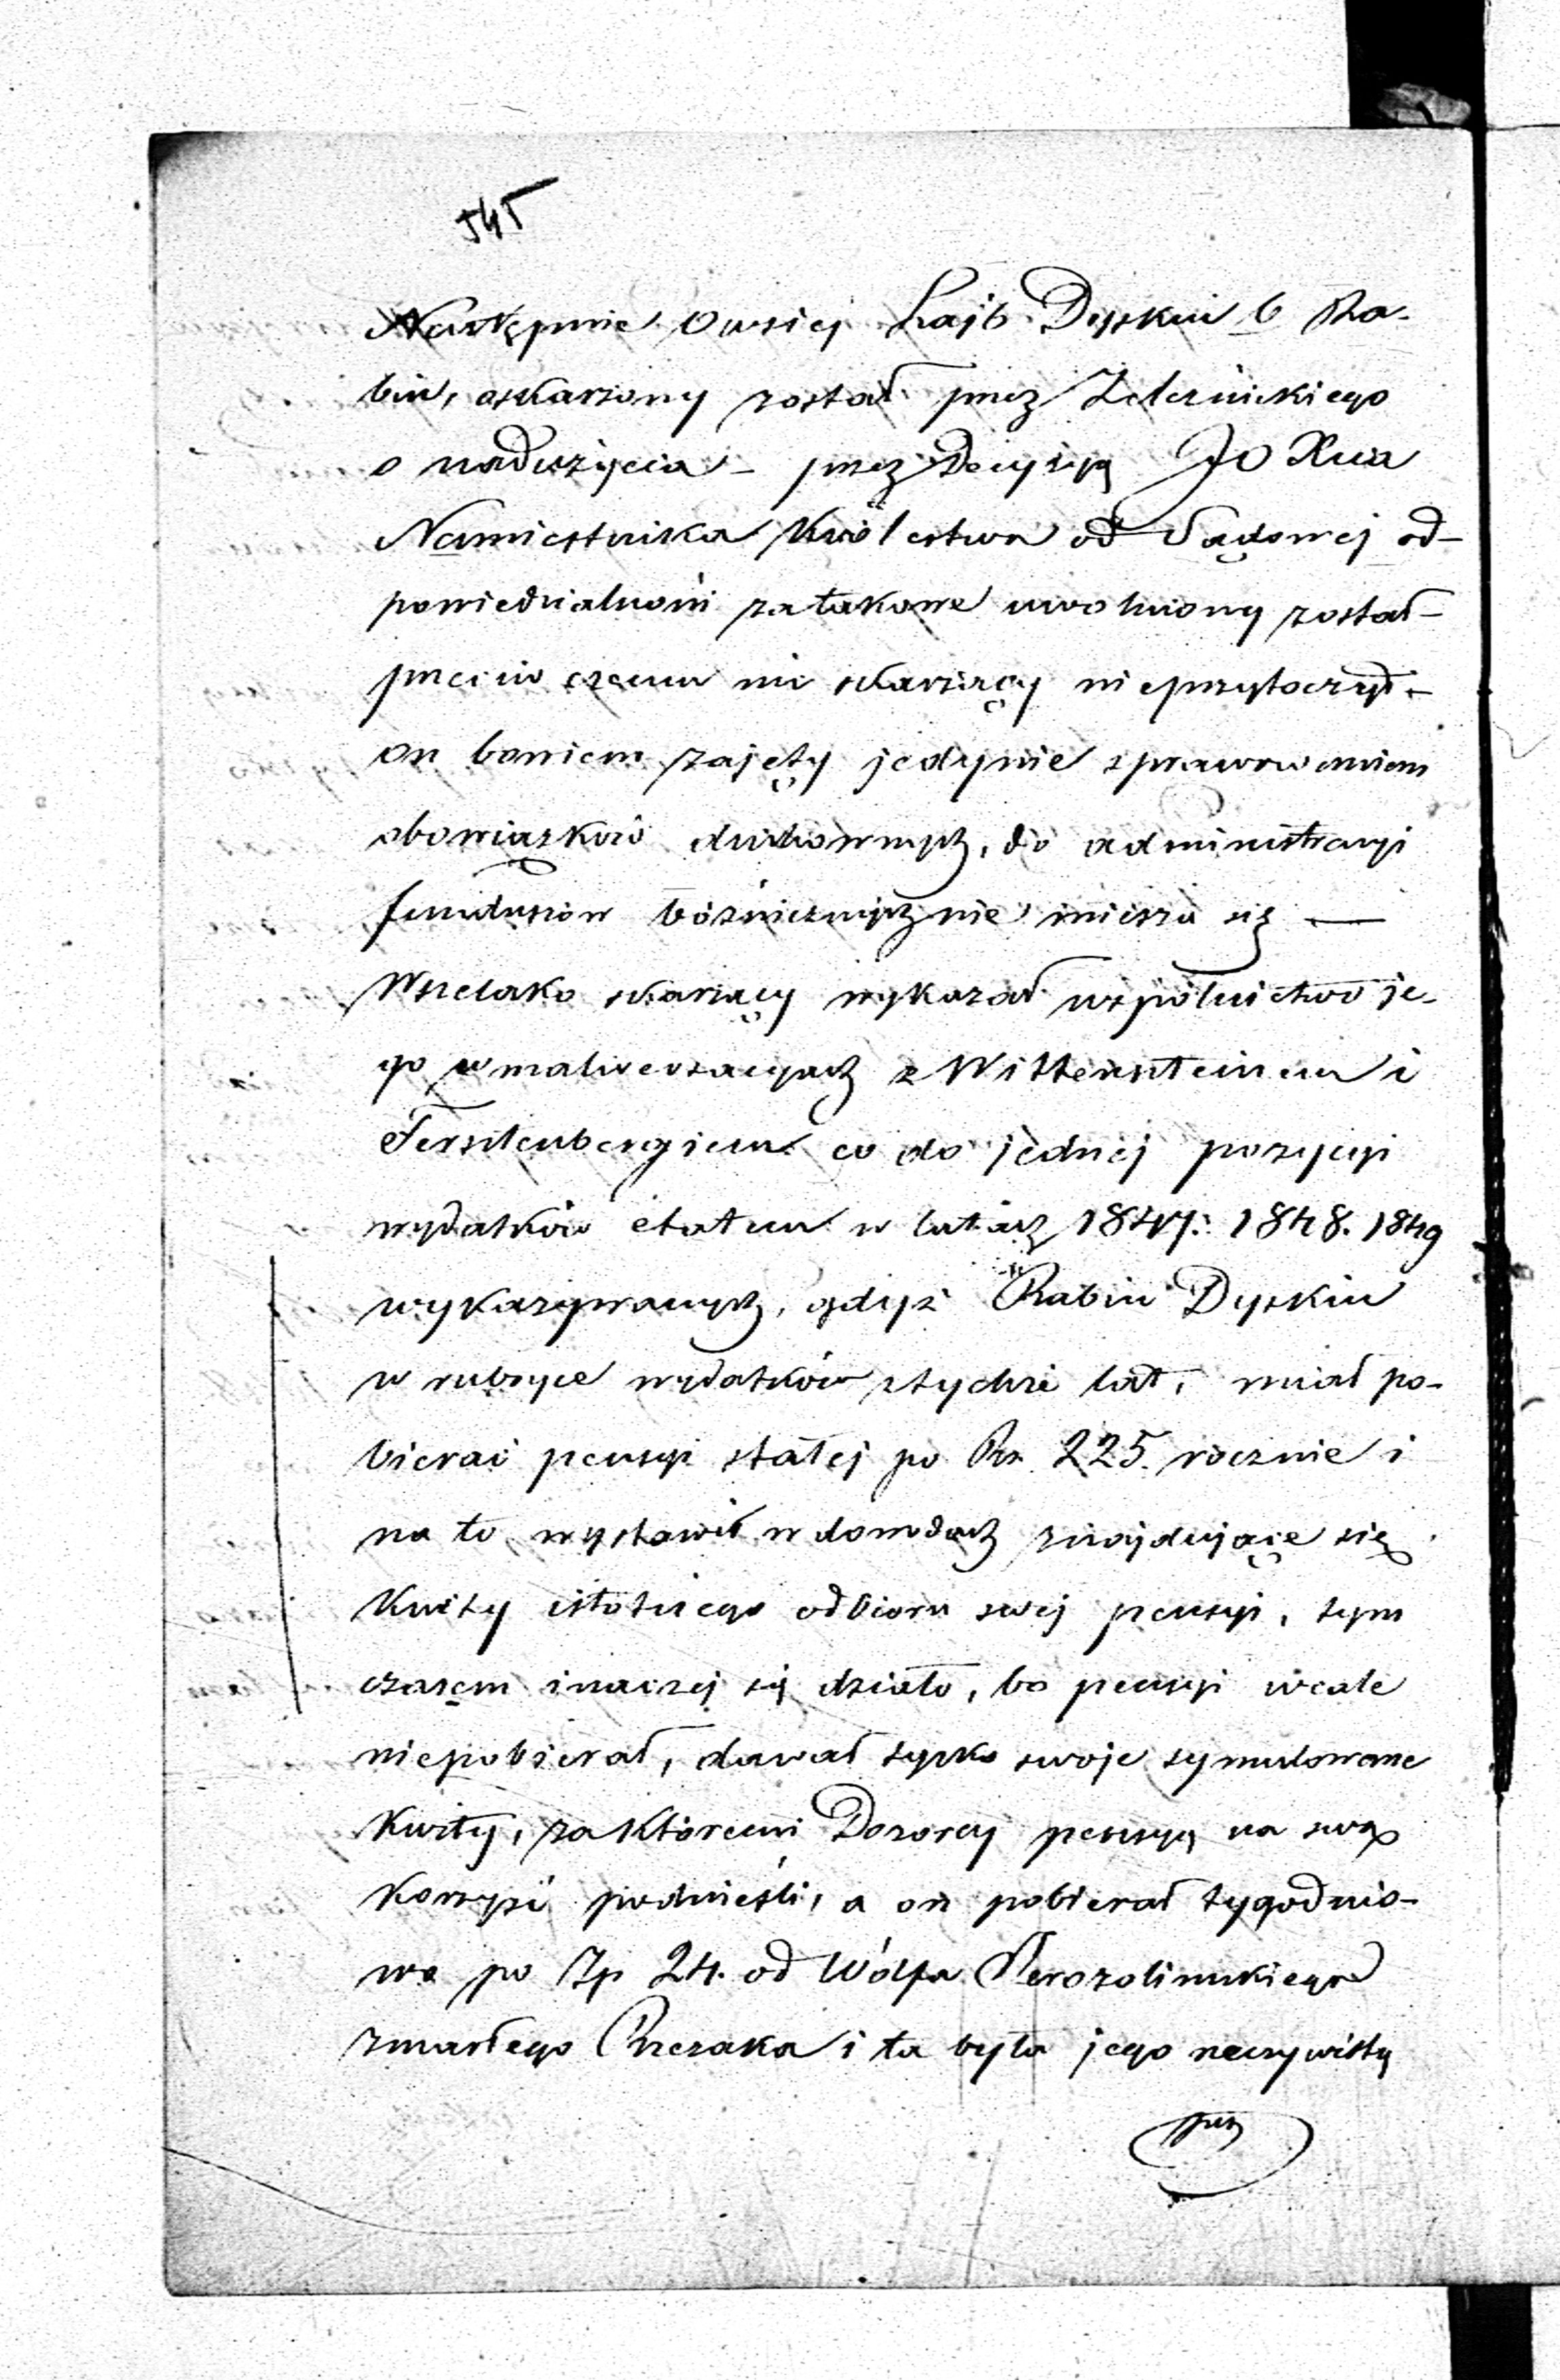 545
Następnie Owsiej Lajb Dyskin b Ra-
bin, oskarżony został przez Żeleźnickiego
o nadużycia – przez Decyzyą JO Xcia
Namiestnika Królestwa od Sądowej od-
powiedzialności za takowe uwolniony został –
przeciw czemu nic skarżący nieprzytoczył –
on bowiem zajęty jedynie sprawowaniem
obowiązków duchownych, do administracyi
funduszów bóżniczych nie miesza się —
Wszelako skarżący wykazał wspólnictwo je-
go w malwersacyach z Wittensteinem i
Fersztenbergiem co do jednej pozycyi
wydatków etatem w latach 1847. 1848. 1849
wykazywanych, gdyż Rabin Dyskin
w rubryce wydatków z tychże lat, miał po-
bierać pensyi stałej po Rs. 225. rocznie i
na to wystawił w dowodach znajdujące się
Kwity istotnego odbioru swej pensyi, tym
czasem inaczej się działo, bo pensyi wcale
niepobierał, dawał tylko swoje symulowane
Kwity, za któremi Dozorcy pensyą na swą
Korzyść podnieśli, a on pobierał tygodnio-
wo po Zp 24. od Wólfa Jerozolimskiego
zmarłego Rzezaka i ta była jego rzeczywistą